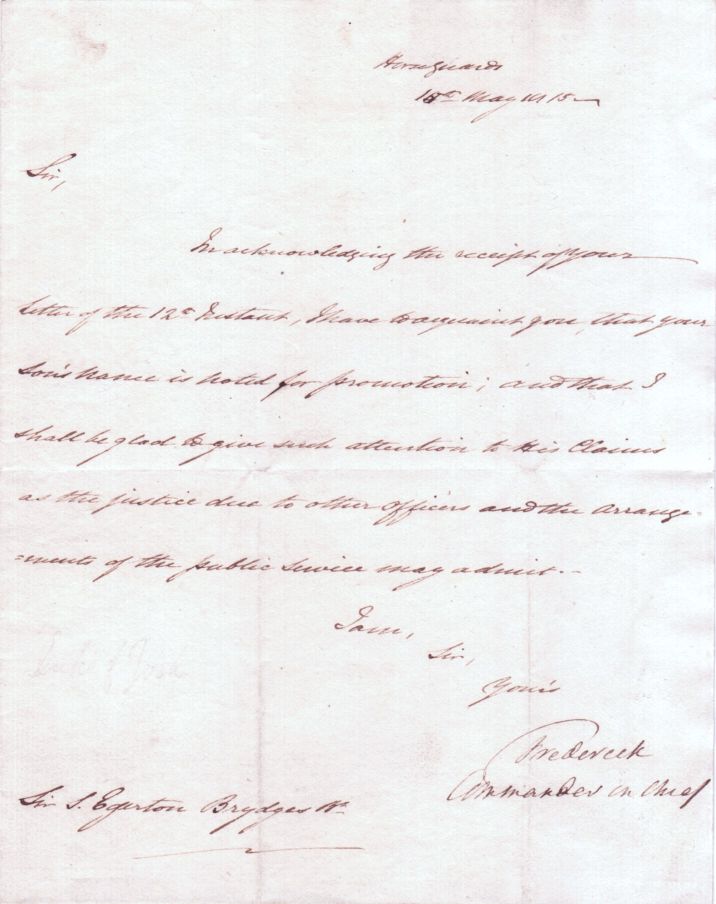 Horseguards
18th May 1815
Sir,
In acknowledging the receipt of your
Letter of the 12th Instant, I have to acquaint you, that your
Son's Name is noted for promotion; and that I
shall be glad to give such attention to His Claims
as the justice due to other Officers and the Arrange-
=ments of the public Service may admit.-
I am,
Sir,
Your's
Frederick
Commander in Chief
Duke of York
Sir S. Egerton Brydges